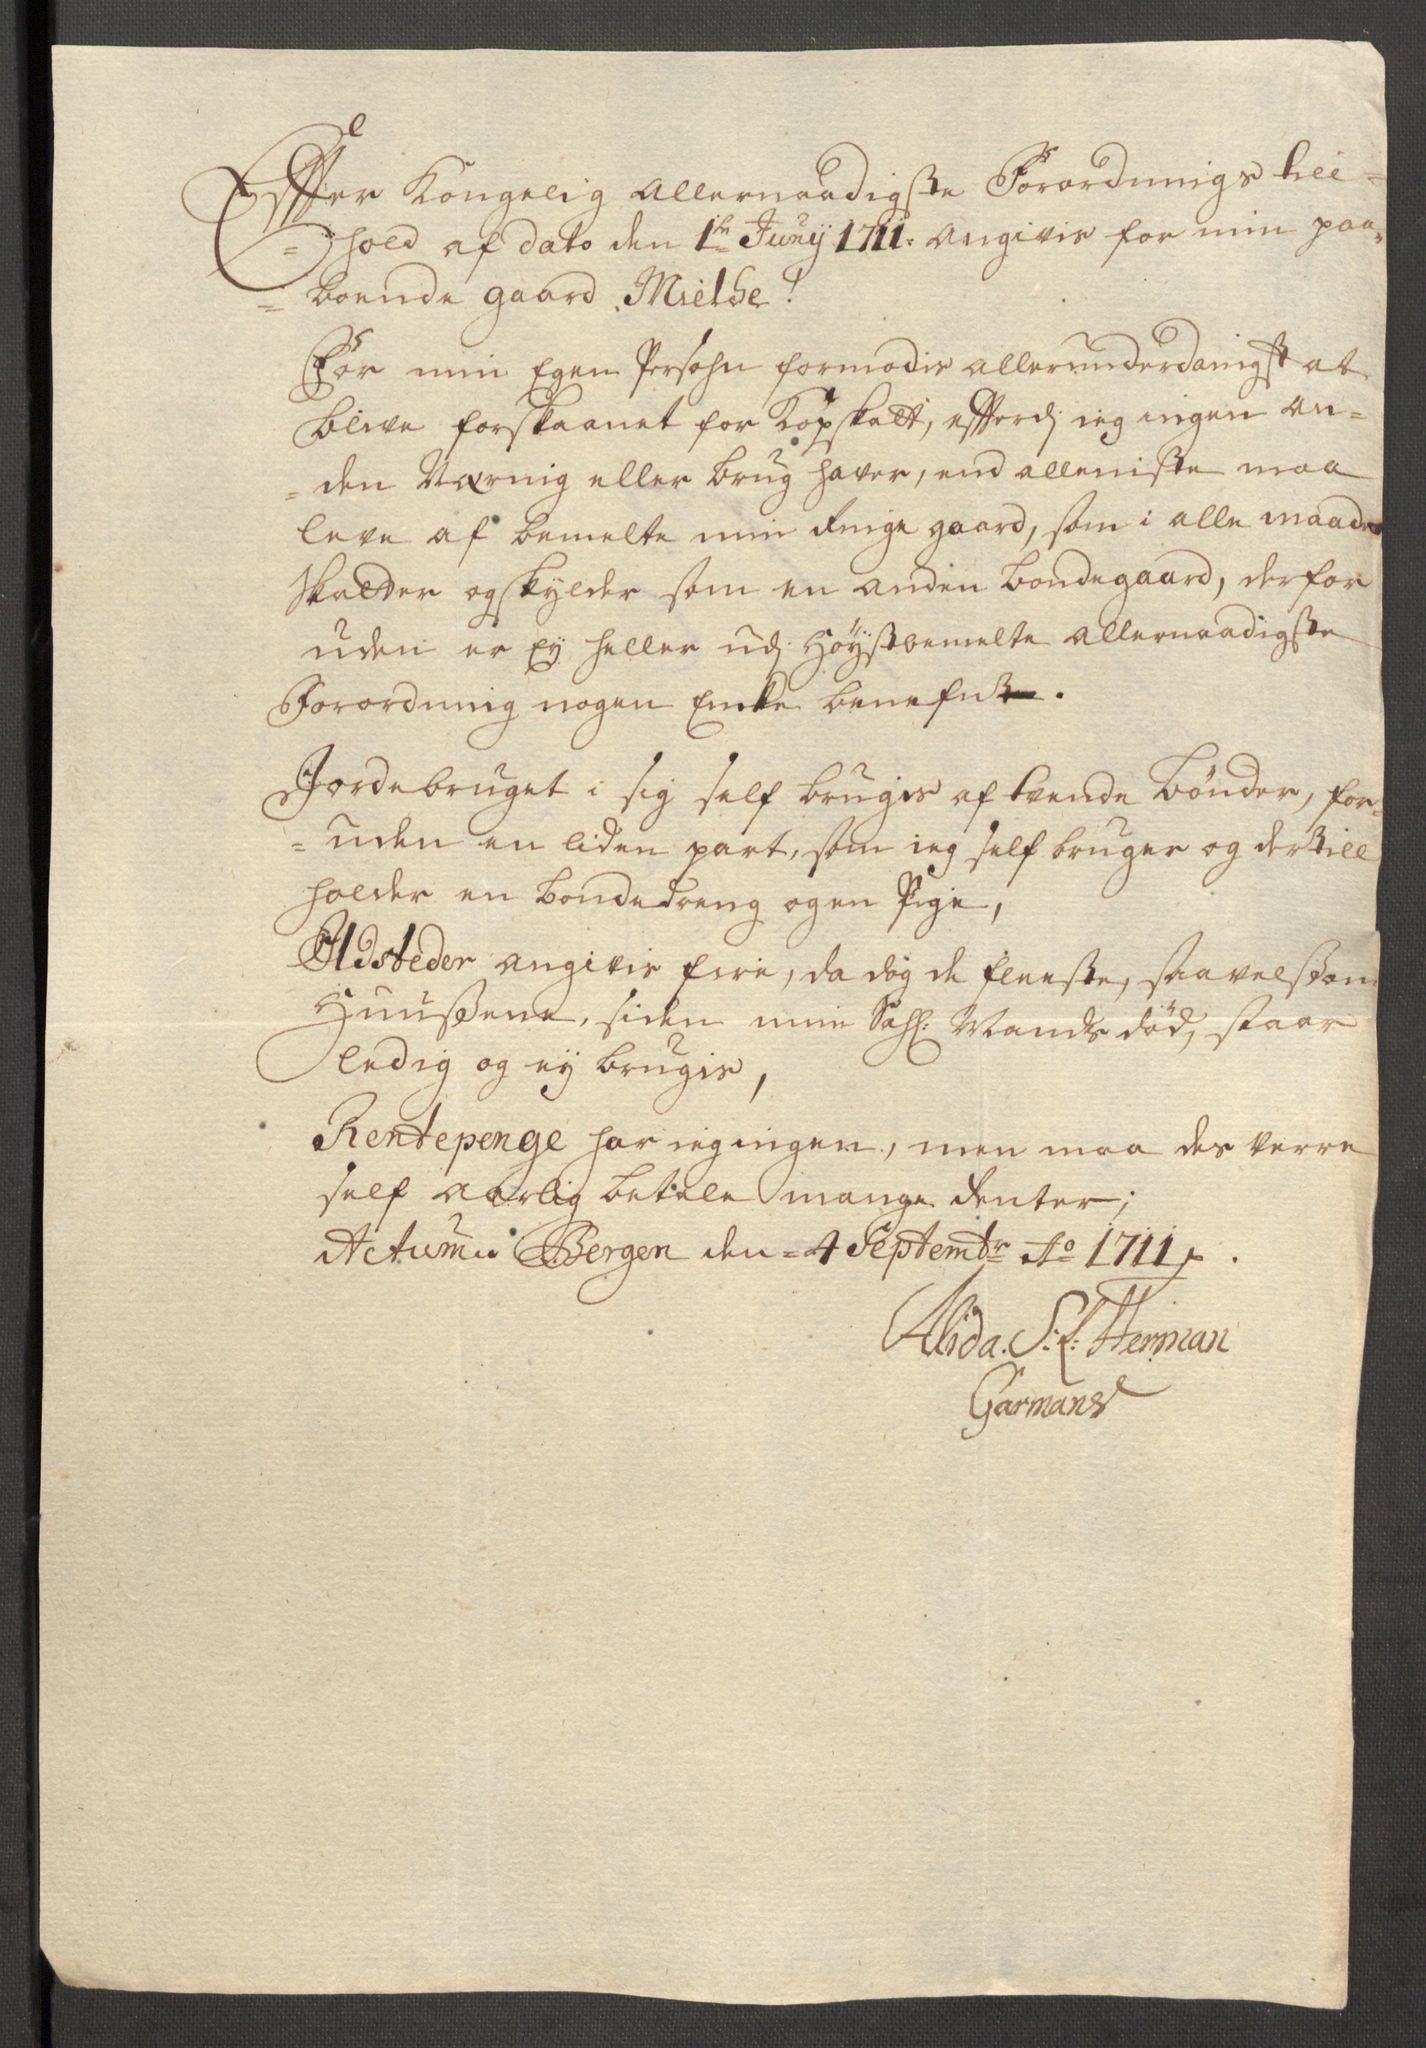 Effter Kongelig Allernaadigste Forordnings till=
=hold af dato den 1te Junij 1711: angivis for min paa=
=boende gaard Mielhe!
For min Egen Persohn formodis allerunderdanigst at
blive forskaanet for Kopskatt, efterdj ieg ingen an=
=den Næring eller brug haver, end alleniste maa
leve af bemelte min Eenige gaard, som i alle maader
skatter og skylder som en anden bondegaard, derfor
uden er Ey heller udj Høystbemelte Allernaadigste
Forordning nogen Encke benefnt.
Jordebruget i sig self brugis af tvende bønder, for=
=uden en liden part, som ieg self bruger og dertill
holder en bondedreng og en Pige,
Ildsteder angivis fire, da dog de fleeste, saavelsom
Huussene, siden min Sahl: Mands død, staar
ledig og ey brugis,
Rentepenge har ieg ingen, men maa des verre
self aarlig betale mange Renter;
Actum Bergen den 4 Septembr Ao 1711
Alida. S: L: Herman
Garmans